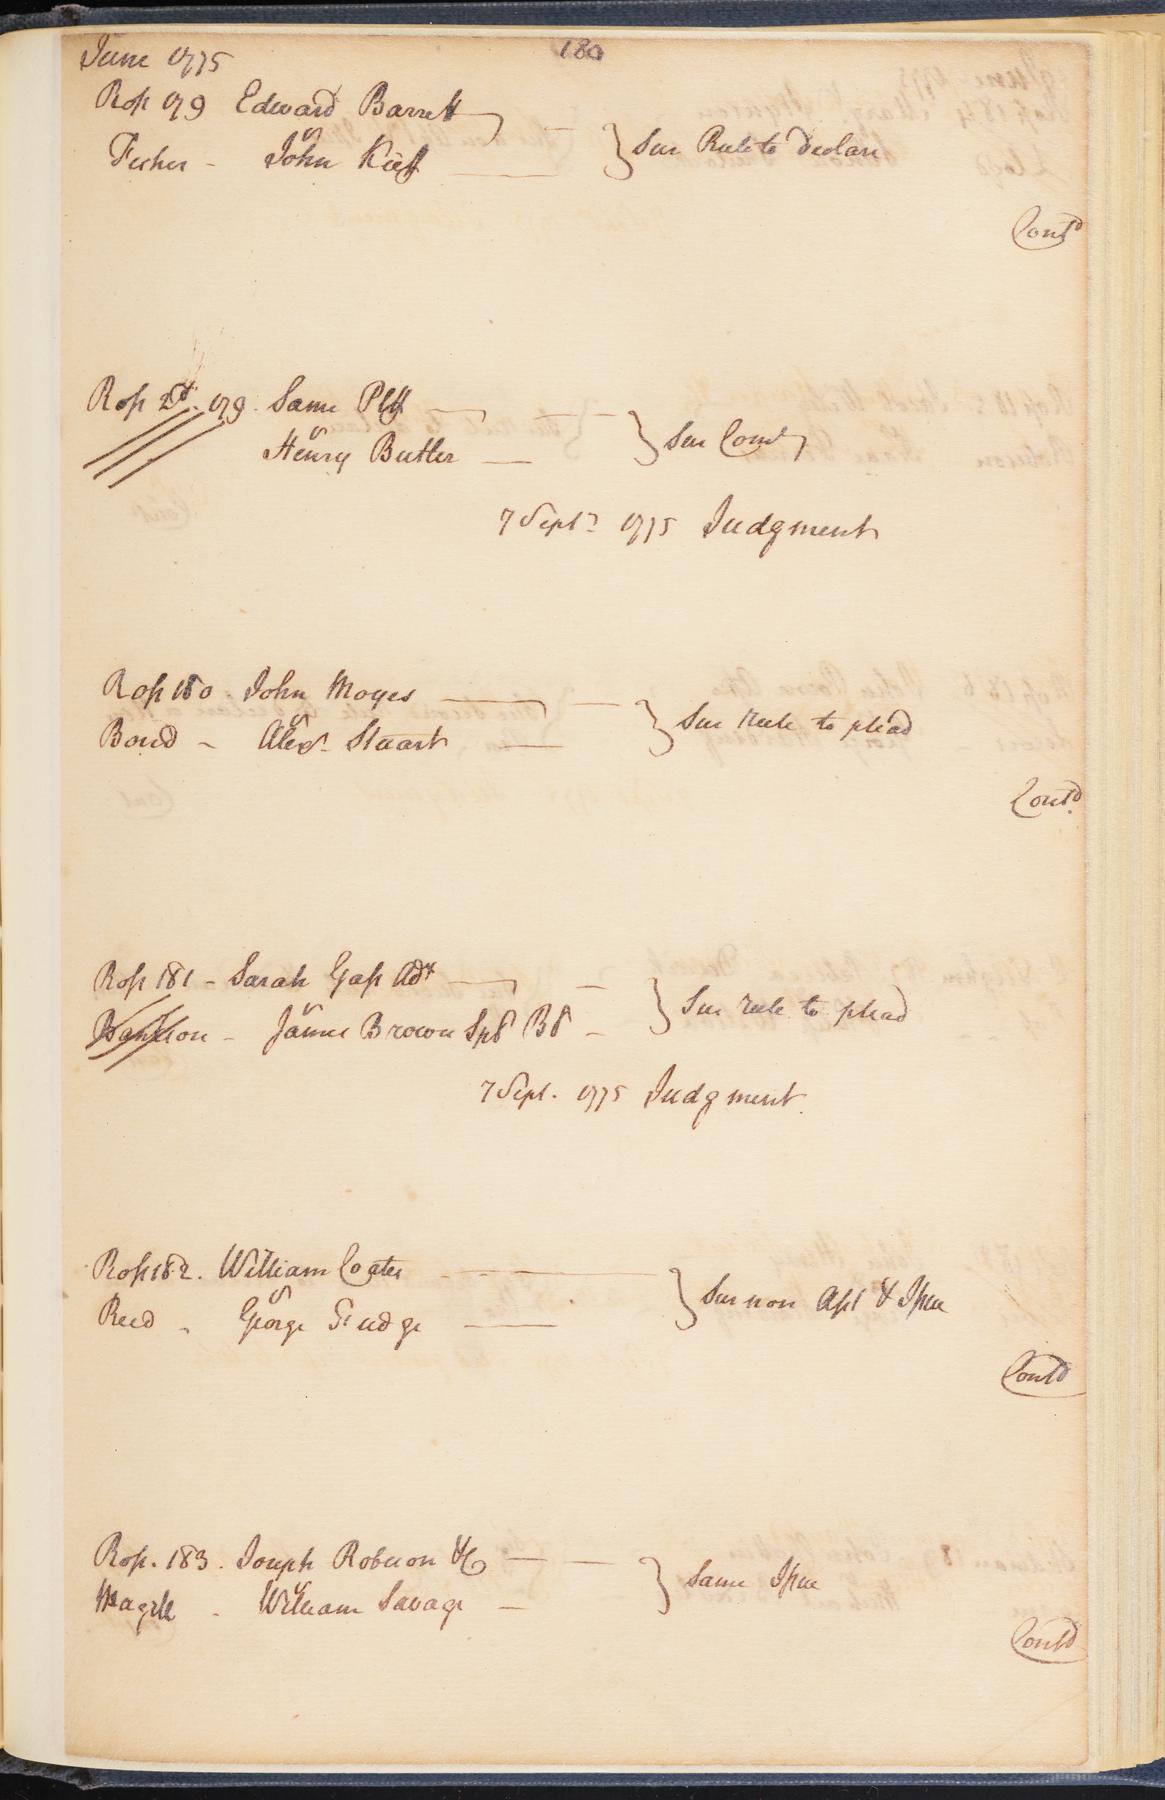 June 1775
180
Ross 179 Edward Barrett
Fisher - John Kieff } Sur Rule to declare
vs
Contd
Ross 2d. 179. Same Plff
vs
Henry Butler } Sur Come
7 Septr 1775 Judgment
Ross 180. John Moyes
vs
Bond - Alexr Stuart } Sur rule to plead
Contd
Ross 181 - Sarah Gass Adx
vs
- James Brown Spl Bl - } Sur rule to plead
7 Sept. 1775 Judgment
Ross 182. William Coates
vs
Reed - George Fudge } Sur non Asst & Issue
Contd
Ross. 183. Joseph Robeson &Co
vs
Magill - William Savage - } Same Issue
Contd